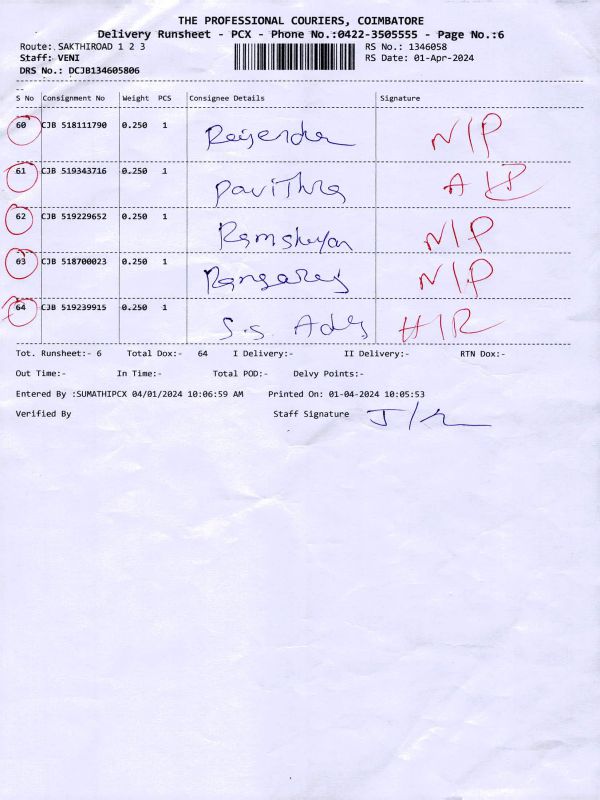 THE PROFESSIONAL COURIERS, COIMBATORE
Delivery Runsheet - PCX - Phone No.:0422-3505555 - Page No.:6
Route: SAKTHIROAD 1 2 3 RS No.: 1346058
Staff: VENI RS Date: 01-Apr-2024
DRS No.: DCJB134605806
S No Consignment No Weight PCS Consignee Details Signature
60 CJB 518111790 0.250 1 Rajendra N/P
61 CJB 519343716 0.250 1 Pavithra
62 CJB 519229652 0.250 1 N/P
63 CJB 518700023 0.250 1 N/P
64 CJB 519239915 0.250 1 S.S. Ads H/R
Tot. Runsheet:- 6 Total Dox:- 64 I Delivery:- II Delivery:- RTN Dox:-
Out Time:- In Time:- Total POD:- Delvy Points:-
Entered By :SUMATHIPCX 04/01/2024 10:06:59 AM Printed On: 01-04-2024 10:05:53
Verified By Staff Signature